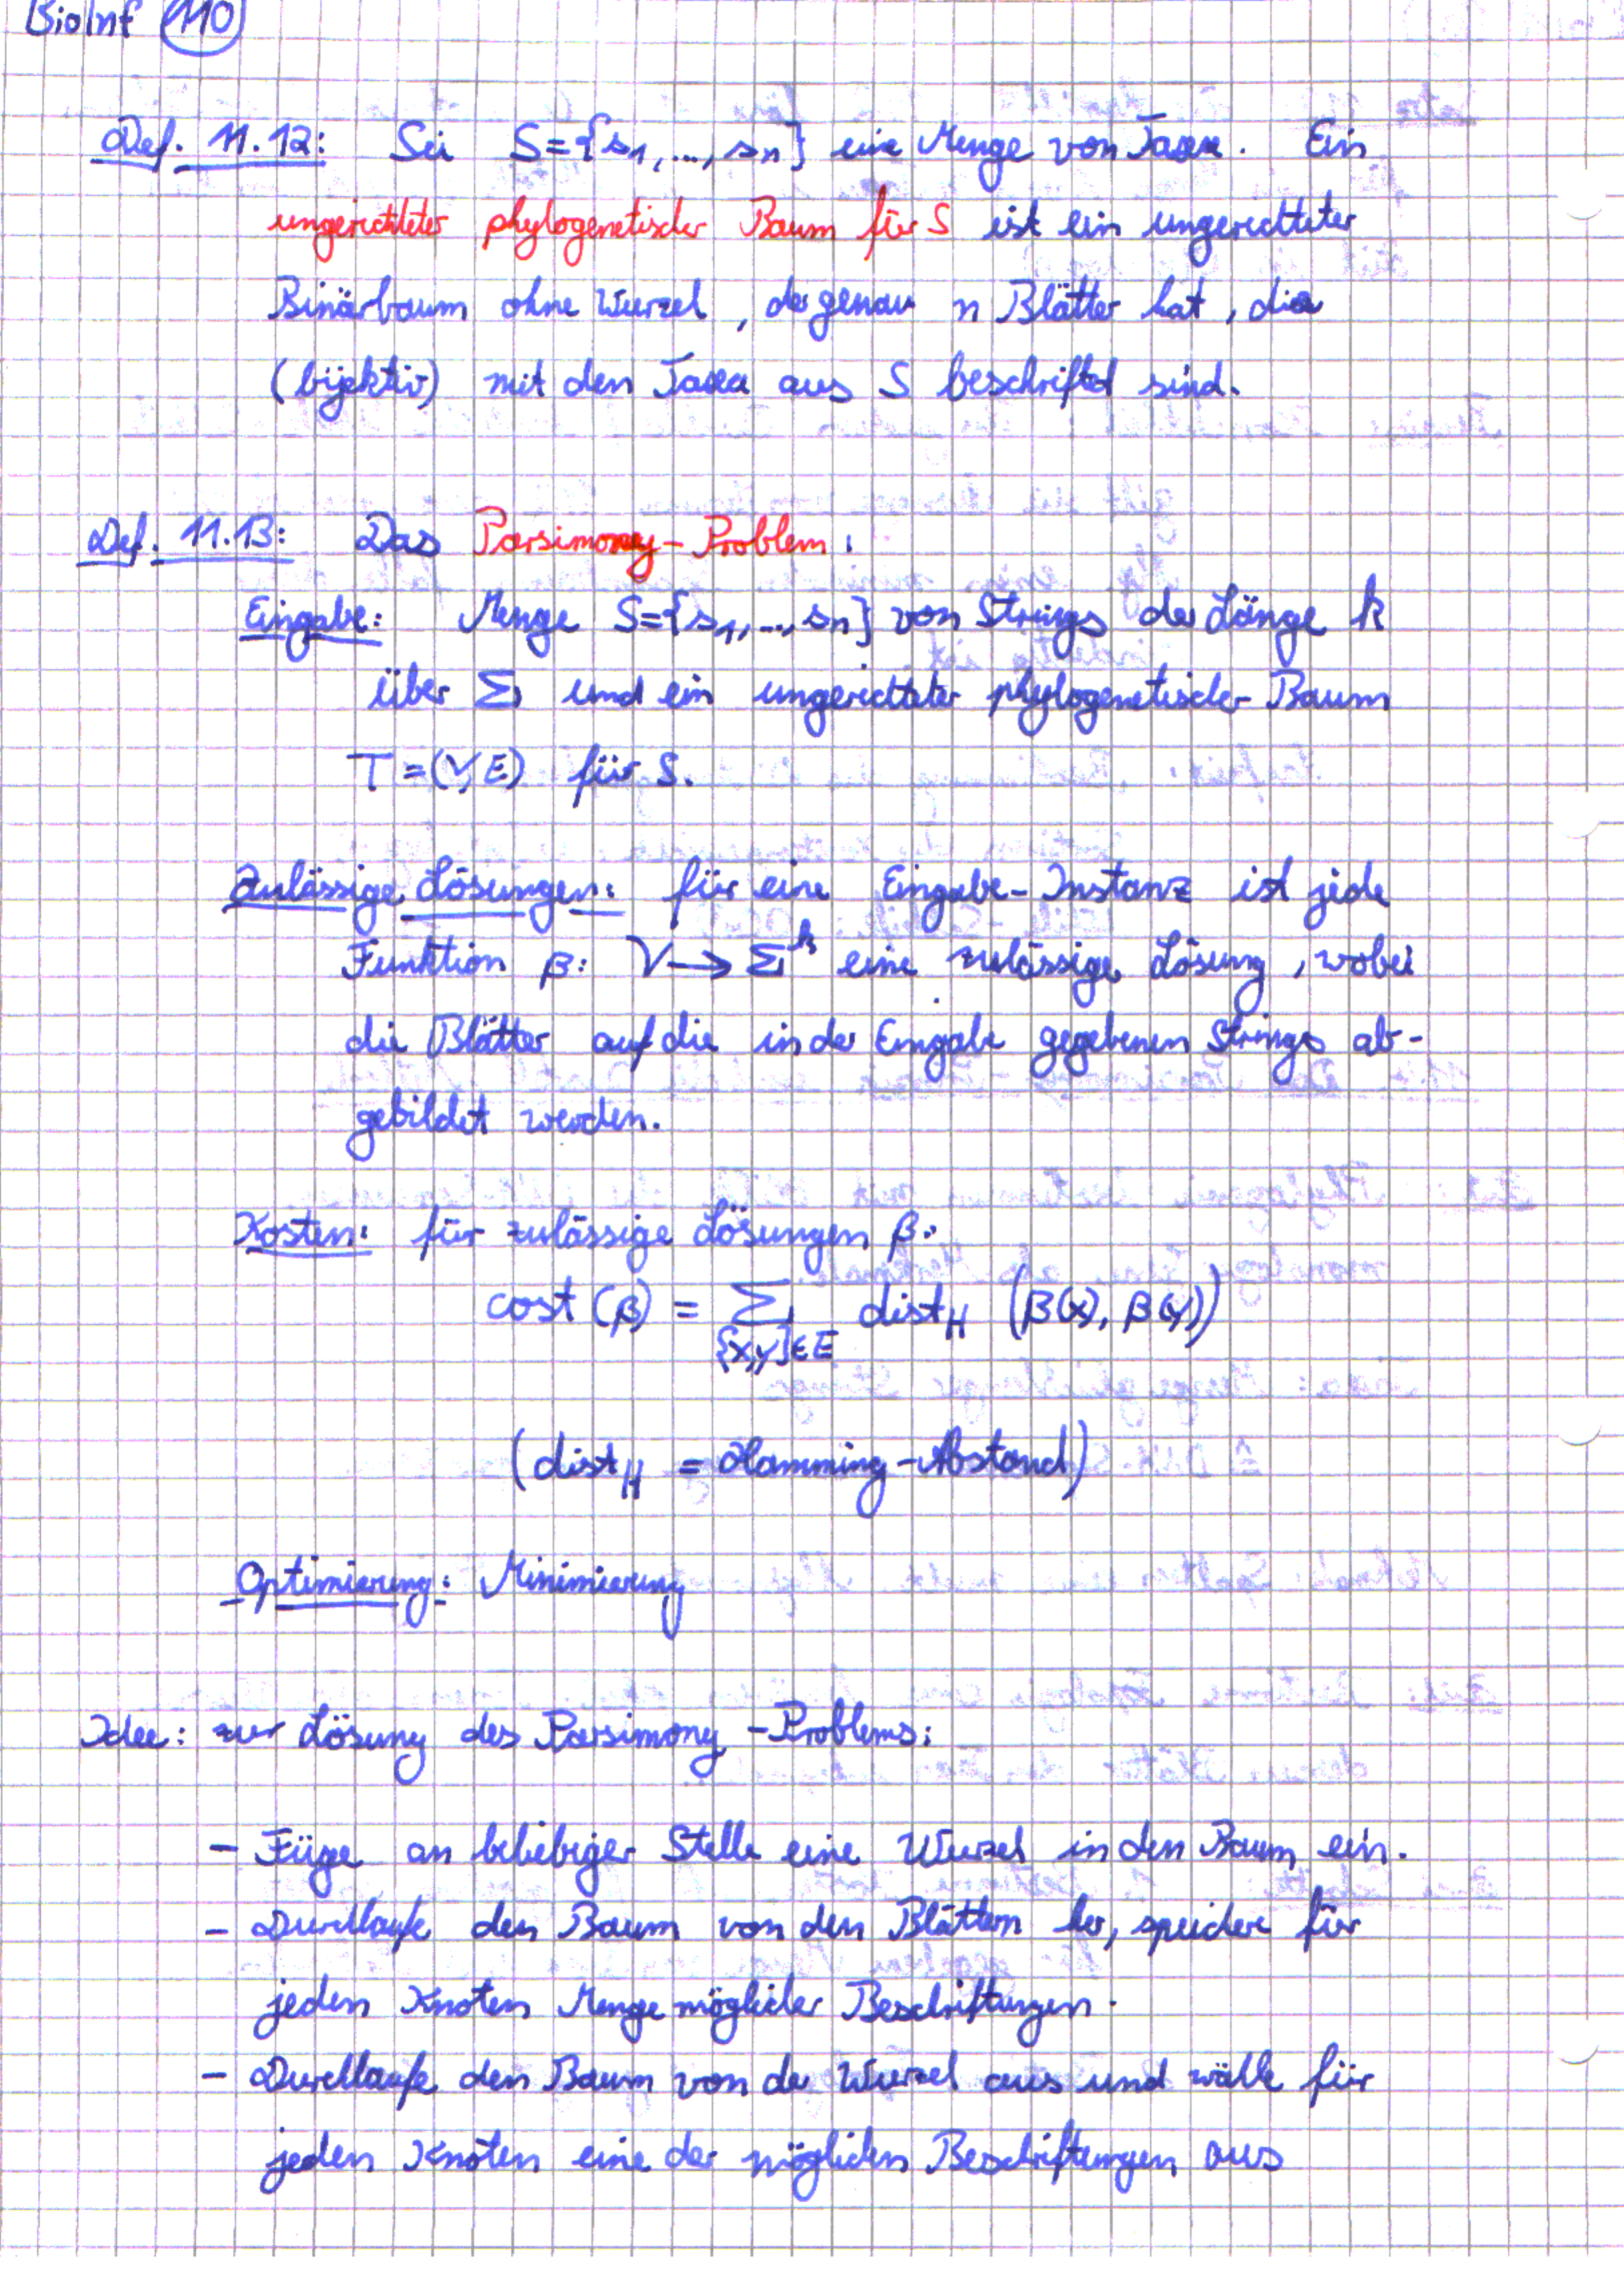 BioInf 110
Def. 11.12: Sei S={s₁,...,sₙ} eine Menge von Taxa. Ein
ungerichteter phylogenetischer Baum für S ist ein ungerichteter
Binärbaum ohne Wurzel, der genau n Blätter hat, die
(bijektiv) mit den Taxa aus S beschriftet sind.
Def. 11.13: Das Parsimony-Problem:
Eingabe: Menge S={s₁,...,sₙ} von Strings der Länge k
über Σ und ein ungerichteter phylogenetischer Baum
T=(V,E) für S.
Zulässige Lösungen: für eine Eingabe-Instanz ist jede
Funktion β: V→Σᵏ eine zulässige Lösung, wobei
die Blätter auf die in der Eingabe gegebenen Strings ab-
gebildet werden.
Kosten: für zulässige Lösungen β:
cost(β) = Σ dist_H (β(x), β(y))
{x,y}∈E
(dist_H = Hamming-Abstand)
Optimierung: Minimierung
Idee: zur Lösung des Parsimony-Problems:
- Füge an beliebiger Stelle eine Wurzel in den Baum ein.
- Durchlaufe den Baum von den Blättern her, speichere für
jeden Knoten Menge möglicher Beschriftungen.
- Durchlaufe den Baum von der Wurzel aus und wähle für
jeden Knoten eine der möglichen Beschriftungen aus